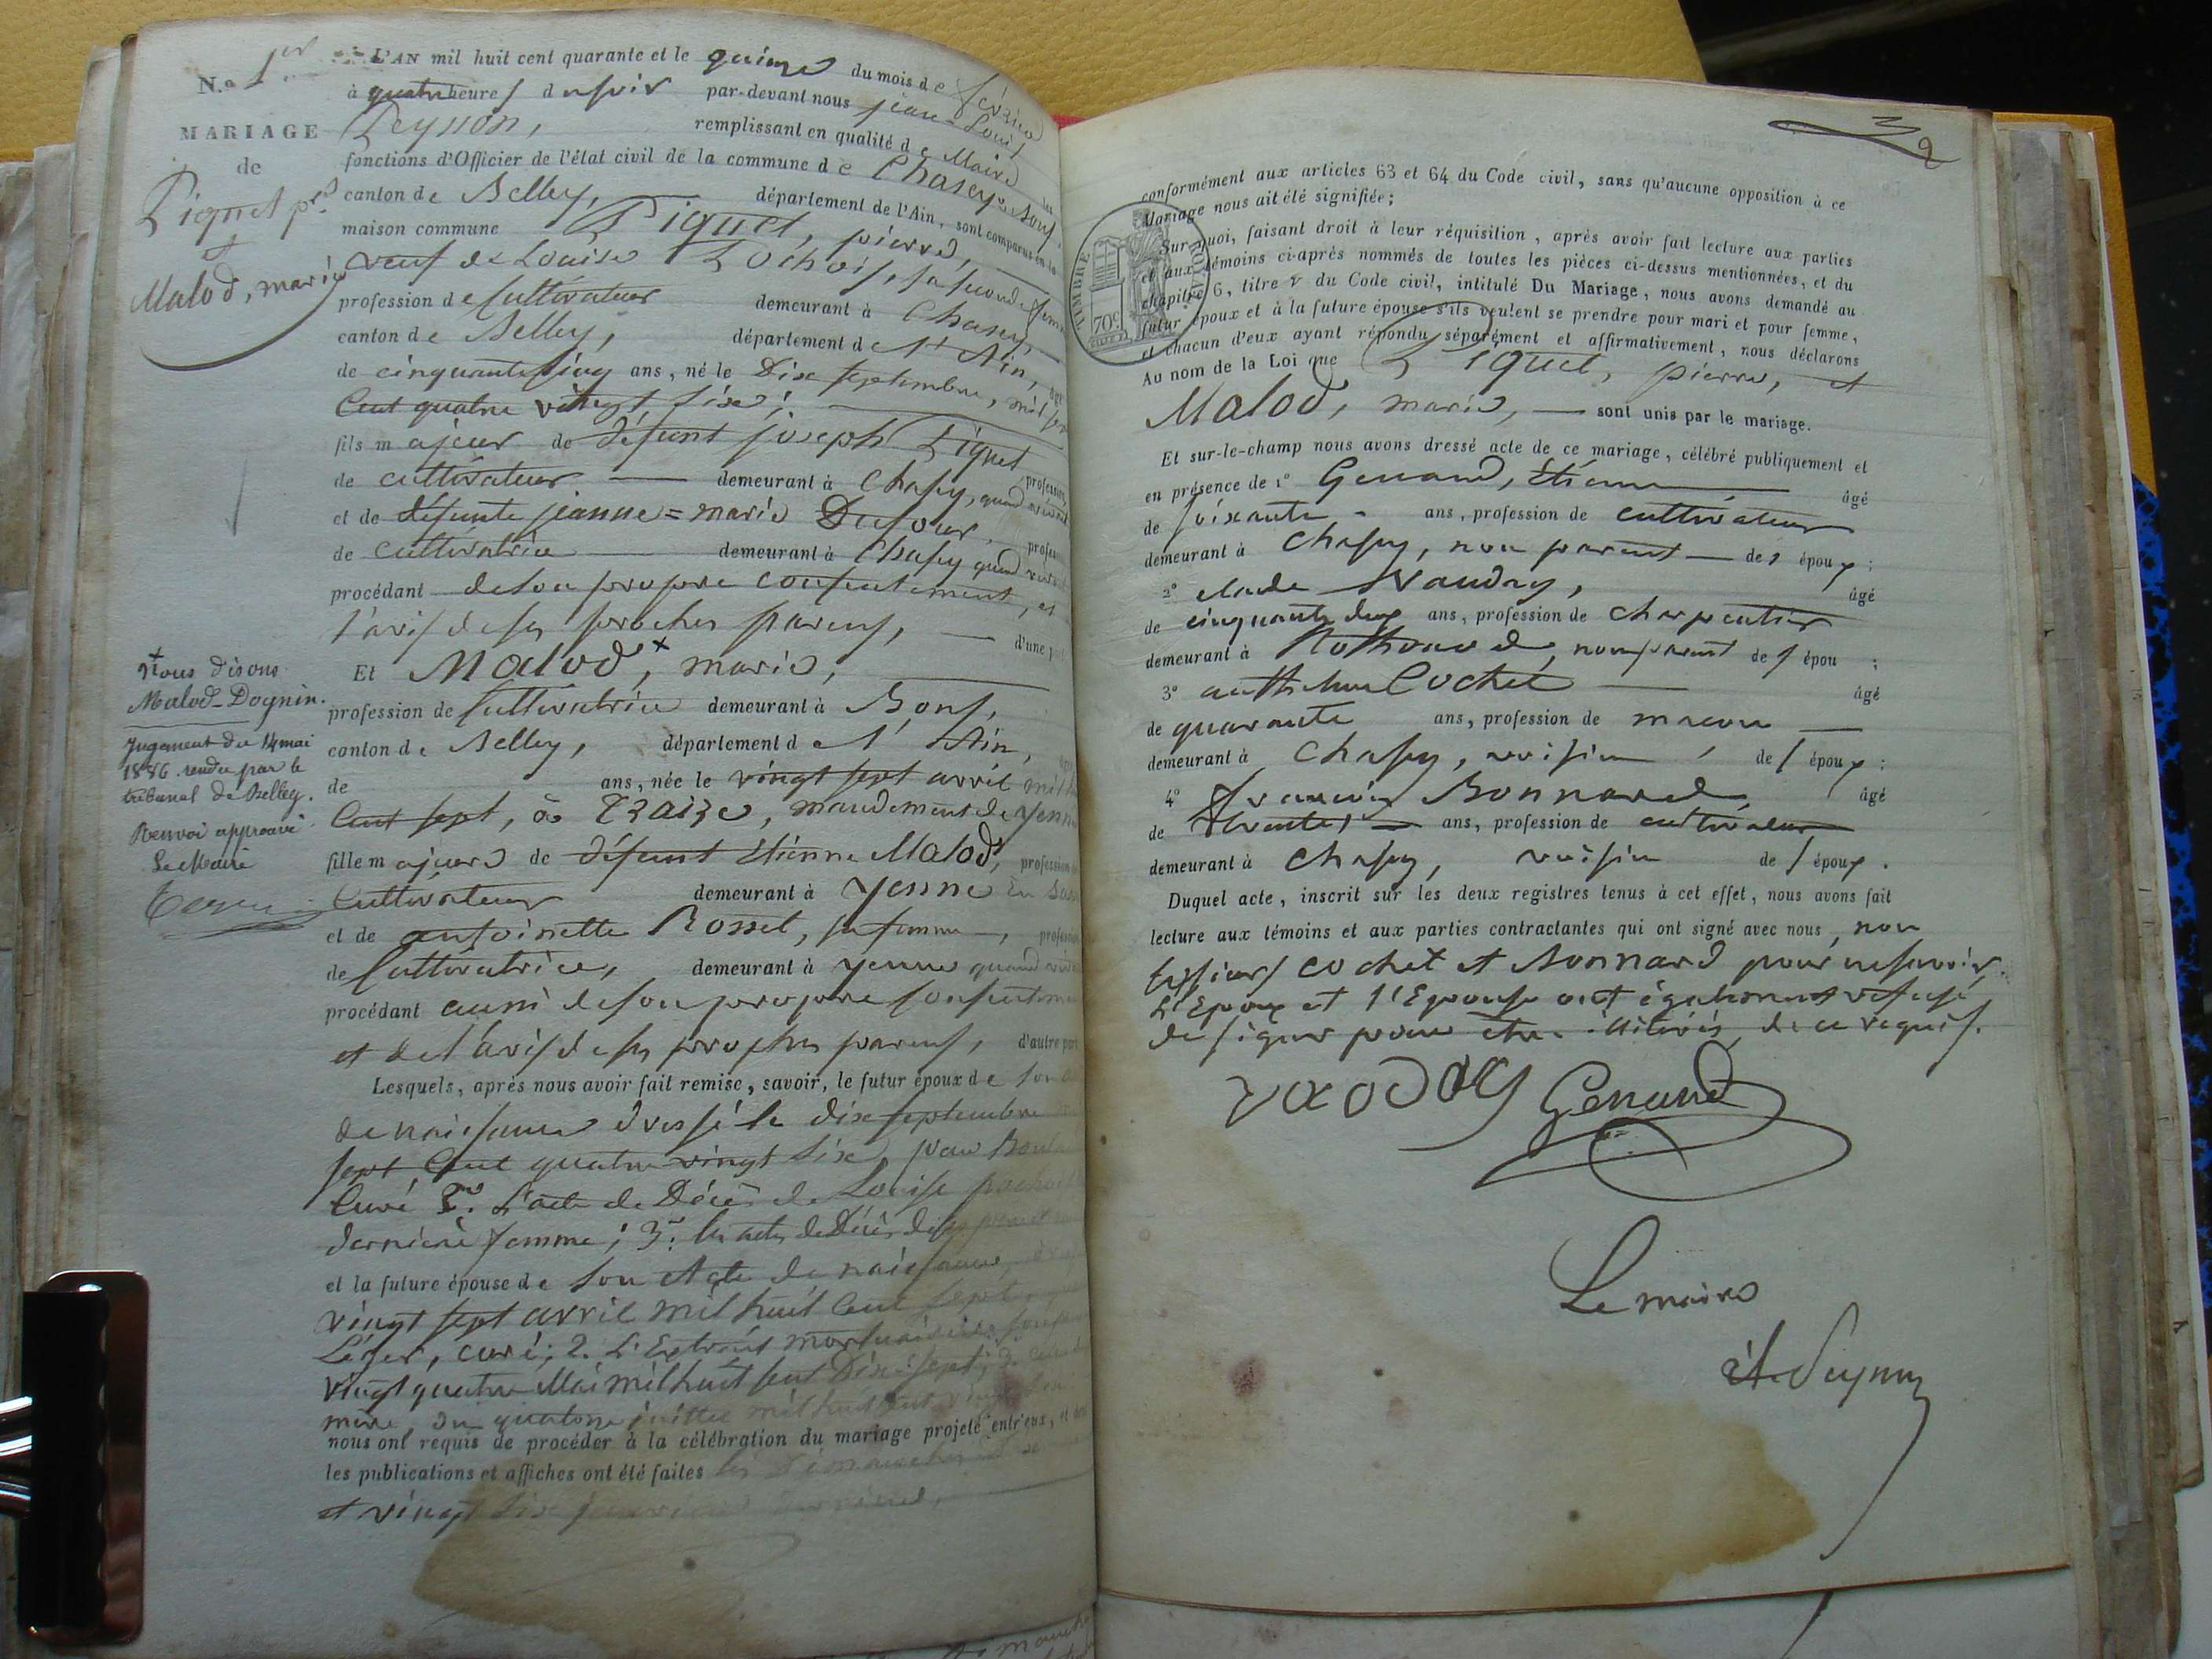 N.o 1er
MARIAGE
de
Piquet pre
et
Malod, marie
L'AN mil huit cent quarante et le quinze du mois de février
à quatre heures du soir par-devant nous jean-Louis
Peysson, remplissant en qualité de Maire
fonctions d'Officier de l'état civil de la commune de Chasey-Bons,
canton de Belley, département de l'Ain, sont comparus en la
maison commune Piquet, pierre,
veuf de Louise Pochois, sa seconde femme
profession de Cultivateur demeurant à Chasey,
canton de Belley, département de l'Ain,
de cinquante cinq ans, né le Dix septembre, mil sept
Cent quatre vingt six;
fils majeur de défunt joseph Piquet
de cultivateur demeurant à Chasey, quand vivait
et de défunte jeanne=marie Dufour,
de cultivatrice demeurant à Chasey quand
procédant de son propre consentement, et
l'avis de ses proches parens, d'une
Et Malod,+ marie,
profession de Cultivatrice demeurant à Bons,
canton de Belley, département de l'Ain,
de ans, née le vingt sept avril mil
Cent sept, à Traize, mandement de Yenne
fille majeure de défunt Etienne Malod,
Cultivateur demeurant à Yenne en
et de antoinette Rosset, sa femme,
de Cultivatrice, demeurant à Yenne quand
procédant aussi de son propre consentement
et de l'avis de ses proches parens, d'autre part
+
Nous disons
Malod-Dognin.
Jugement du 14 mai
1886 rendu par le
tribunal de Belley.
Renvoi approuvé
Le Maire
Lesquels, après nous avoir fait remise, savoir, le futur époux de son
de naissance dressé le dix septembre
sept Cent quatre vingt six, par
Curé 2.o L'acte de Décès de Louise pochois
dernière femme; 3.o les actes de Décès de ses
et la future épouse de son Acte de naissance,
vingt sept avril mil huit Cent sept,
Léger, curé; 2. L'Extrait mortuaire de son
vingt quatre Mai mil huit cent Dix sept; 3.
mère, du quatorze juillet mil huit cent vingt
nous ont requis de procéder à la célébration du mariage projeté entr'eux, et
les publications et affiches ont été faites les Dimanches
et vingt six janvier dernier,
2
conformément aux articles 63 et 64 du Code civil, sans qu'aucune opposition à ce
Mariage nous ait été signifiée;
TIMBRE ROYAL
70c
Sur quoi, faisant droit à leur réquisition, après avoir fait lecture aux parties
et aux témoins ci-après nommés de toutes les pièces ci-dessus mentionnées, et du
chapitre 6, titre v du Code civil, intitulé Du Mariage, nous avons demandé au
futur époux et à la future épouse s'ils veulent se prendre pour mari et pour femme,
et chacun d'eux ayant répondu séparément et affirmativement, nous déclarons
Au nom de la Loi que Piquet, pierre, et
Malod, marie, sont unis par le mariage.
Et sur-le-champ nous avons dressé acte de ce mariage, célébré publiquement et
en présence de 1o Genand, Etienne âgé
de soixante ans, profession de cultivateur
demeurant à Chasey, non parent des époux;
2o claude Vaudray, âgé
de cinquante deux ans, profession de charpentier
demeurant à Rothonod, non parent des épou;
3o anthelme Cochet âgé
de quarante ans, profession de macon
demeurant à Chasey, voisin des époux;
4o francois Bonnard, âgé
de trente, ans, profession de cultivateur
demeurant à Chasey, voisin des époux.
Duquel acte, inscrit sur les deux registres tenus à cet effet, nous avons fait
lecture aux témoins et aux parties contractantes qui ont signé avec nous, non
les sieurs cochet et Bonnard pour ne savoir,
L'Epoux et l'Epouse ont également refusé
de signer pour être illitérés, de ce requis.
vaodray Genand
Le maire